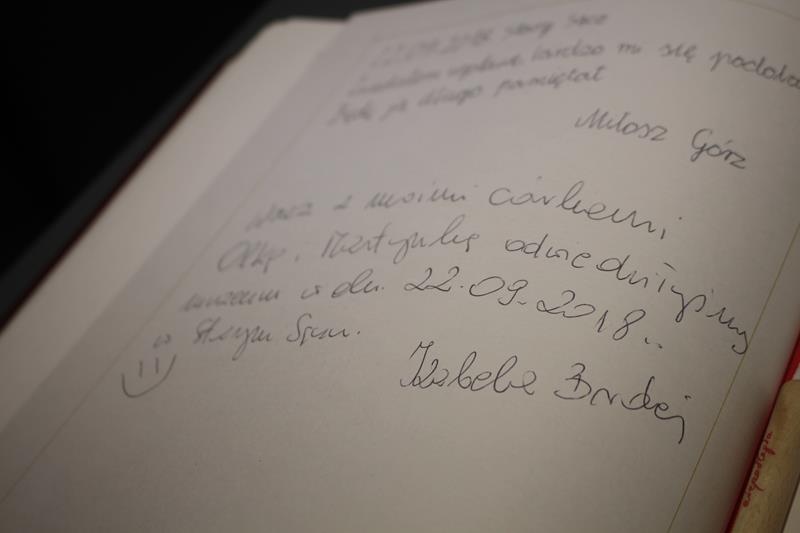 22.09.2018 Stary Sącz
bardzo mi się podoba
Będę ją długo pamiętał
Miłosz Górz
Wraz z moimi córkami
Olką i Martynką odwiedziłyśmy
muzeum w dn. 22.09.2018..
w Starym Sączu.
Izabela